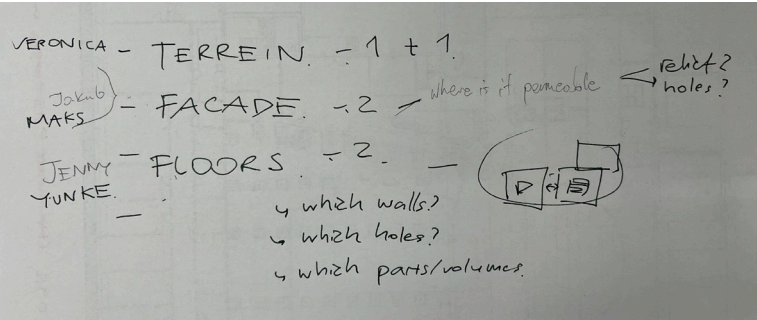 VERONICA - TERREIN. - 1 + 1.
Jakub
MAKS - FACADE. - 2 - where is it permeable
relief?
holes?
JENNY - FLOORS - 2. -
YUNKE.
-
↳ which walls?
↳ which holes?
↳ which parts/volumes.